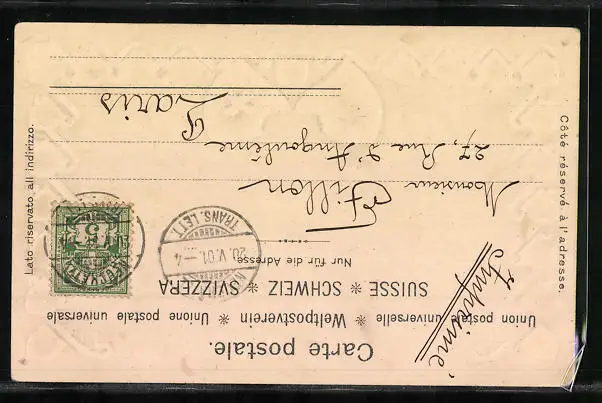 Carte postale.
Union postale universelle * Weltpostverein * Unione postale universale
SUISSE * SCHWEIZ * SVIZZERA
Nur für die Adresse
Côté réservé à l'adresse.
Lato riservato all indirizzo.
Imprimé
TRANS. LETT.
20. V. 01. – 4
5
Monsieur Fillon
27, Rue d'Angoulême
Paris